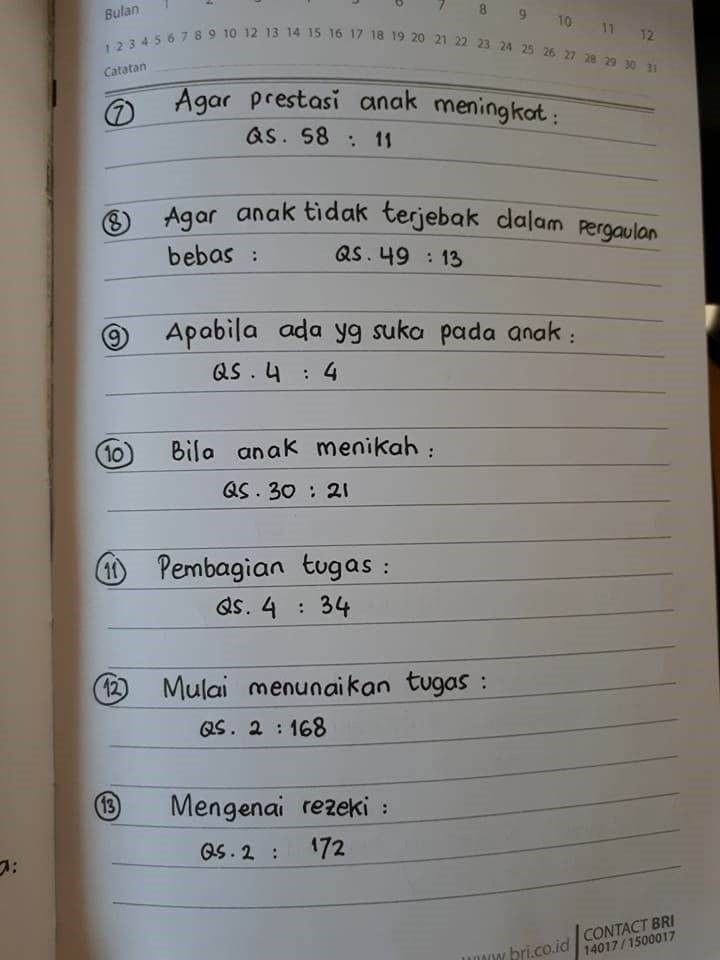 Bulan 1 2 6 7 8 9 10 11 12
1 2 3 4 5 6 7 8 9 10 12 13 14 15 16 17 18 19 20 21 22 23 24 25 26 27 28 29 30 31
Catatan
7 Agar prestasi anak meningkat :
QS. 58 : 11
8 Agar anak tidak terjebak dalam pergaulan
bebas : QS. 49 : 13
9 Apabila ada yg suka pada anak :
QS. 4 : 4
10 Bila anak menikah :
QS. 30 : 21
11 Pembagian tugas :
QS. 4 : 34
12 Mulai menunaikan tugas :
QS. 2 : 168
13 Mengenai rezeki :
QS. 2 : 172
a:
www.bri.co.id CONTACT BRI
14017 / 1500017